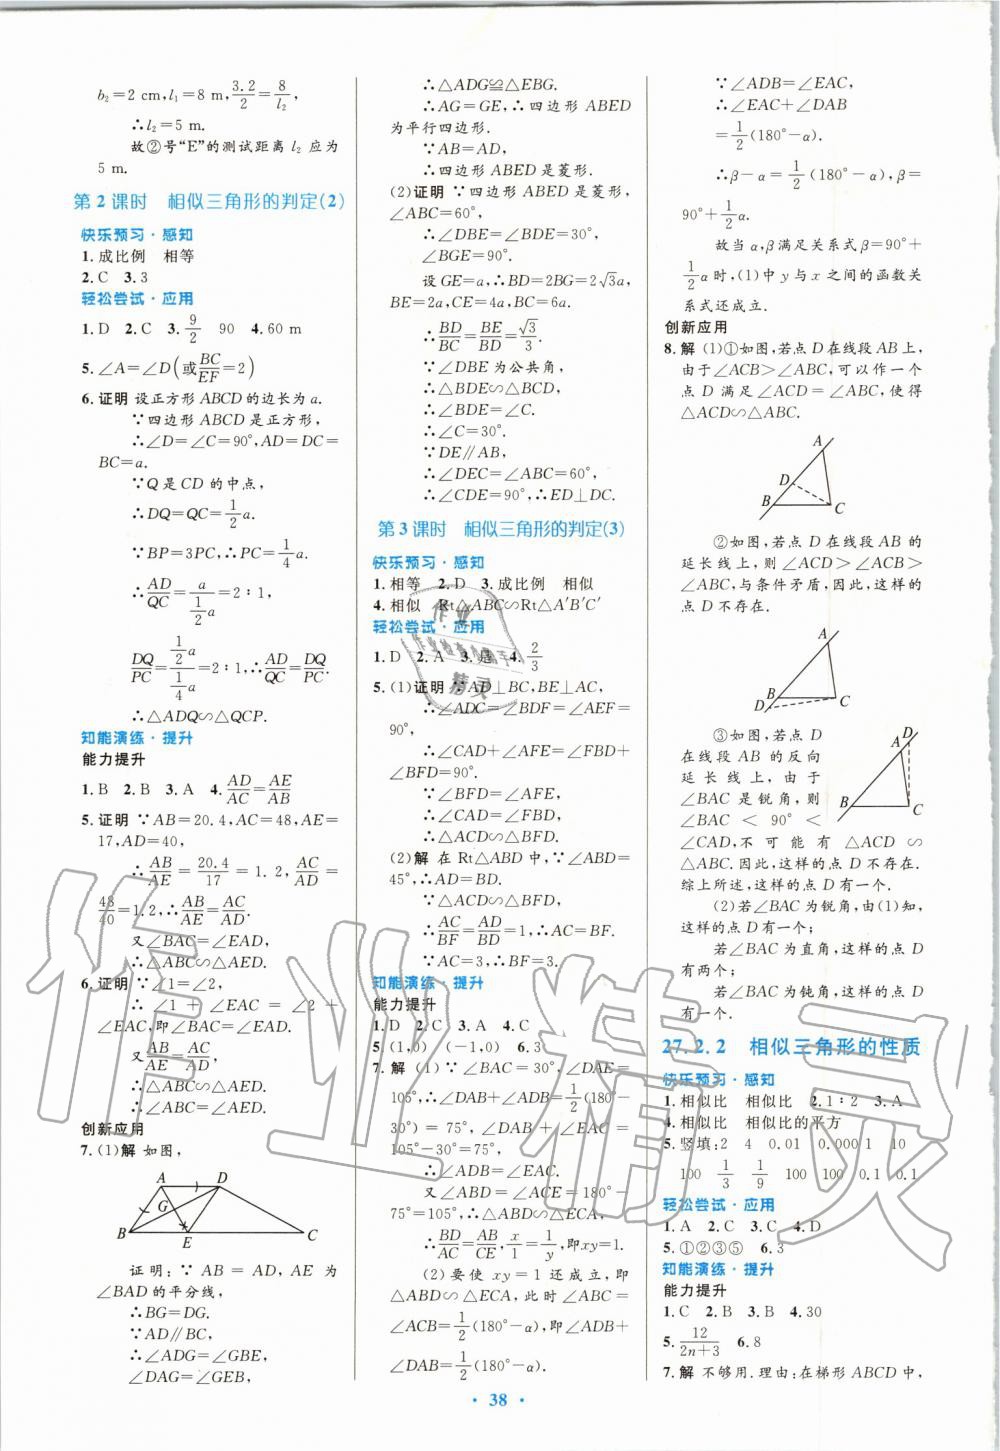 b₂=2 cm,l₁=8 m,3.2/2=8/l₂,
∴l₂=5 m.
故②号“E”的测试距离 l₂ 应为
5 m.
第2课时 相似三角形的判定(2)
快乐预习·感知
1.成比例 相等
2.C 3.3
轻松尝试·应用
1.D 2.C 3.9/2 90 4.60 m
5.∠A=∠D(或BC/EF=2)
6.证明 设正方形 ABCD 的边长为 a.
∵四边形 ABCD 是正方形,
∴∠D=∠C=90°,AD=DC=
BC=a.
∵Q 是 CD 的中点,
∴DQ=QC=1/2a.
∵BP=3PC,∴PC=1/4a.
∴AD/QC=a/(1/2a)=2∶1,
DQ/PC=(1/2a)/(1/4a)=2∶1,∴AD/QC=DQ/PC.
∴△ADQ∽△QCP.
知能演练·提升
能力提升
1.B 2.B 3.A 4.AD/AC=AE/AB
5.证明 ∵AB=20.4,AC=48,AE=
17,AD=40,
∴AB/AE=20.4/17=1.2,AC/AD=
48/40=1.2,∴AB/AE=AC/AD.
又∠BAC=∠EAD,
∴△ABC∽△AED.
6.证明 ∵∠1=∠2,
∴∠1+∠EAC=∠2+
∠EAC,即∠BAC=∠EAD.
又AB/AE=AC/AD,
∴△ABC∽△AED.
∴∠ABC=∠AED.
创新应用
7.(1)解 如图,
A D
G
B E C
证明:∵AB=AD,AE 为
∠BAD 的平分线,
∴BG=DG.
∵AD∥BC,
∴∠ADG=∠GBE,
∠DAG=∠GEB,
∴△ADG≌△EBG.
∴AG=GE,∴四边形 ABED
为平行四边形.
∵AB=AD,
∴四边形 ABED 是菱形.
(2)证明 ∵四边形 ABED 是菱形,
∠ABC=60°,
∴∠DBE=∠DBE=30°,
∠BGE=90°.
设 GE=a,∴BD=2BG=2√3a,
BE=2a,CE=4a,BC=6a.
∴BD/BC=BE/BD=√3/3.
∵∠DBE 为公共角,
∴△BDE∽△BCD,
∴∠BDE=∠C.
∴∠C=30°.
∵DE∥AB,
∴∠DEC=∠ABC=60°,
∴∠CDE=90°,∴ED⊥DC.
第3课时 相似三角形的判定(3)
快乐预习·感知
1.相等 2.D 3.成比例 相似
4.相似 Rt△ABC∽Rt△A′B′C′
轻松尝试·应用
1.D 2.A 3.是 4.2/3
5.(1)证明 ∵AD⊥BC,BE⊥AC,
∴∠ADC=∠BDF=∠AEF=
90°.
∴∠CAD+∠AFE=∠FBD+
∠BFD=90°.
∵∠BFD=∠AFE,
∴∠CAD=∠FBD.
∴△ACD∽△BFD.
(2)解 在 Rt△ABD 中,∵∠ABD=
45°,∴AD=BD.
∵△ACD∽△BFD,
∴AC/BF=AD/BD=1,∴AC=BF.
∵AC=3,∴BF=3.
知能演练·提升
能力提升
1.D 2.C 3.A 4.C
5.(1,0) (-1,0) 6.3
7.解 (1)∵∠BAC=30°,∠DAE=
105°,∴∠DAB+∠ADB=1/2(180°-
30°)=75°,∠DAB+∠EAC=
105°-30°=75°,
∴∠ADB=∠EAC.
又∠ABD=∠ACE=180°-
75°=105°,∴△ABD∽△ECA,
∴BD/AC=AB/CE,x/1=1/y,即xy=1.
(2)要使 xy=1 还成立,即
△ABD∽△ECA,此时∠ABC=
∠ACB=1/2(180°-α),∠ADB+
∠DAB=1/2(180°-α).
∵∠ADB=∠EAC,
∴∠EAC+∠DAB
=1/2(180°-α).
∴β-α=1/2(180°-α),β=
90°+1/2α.
故当 α,β 满足关系式 β=90°+
1/2α时,(1)中 y 与 x 之间的函数关
系式还成立.
创新应用
8.解 (1)①如图,若点 D 在线段 AB 上,
由于∠ACB>∠ABC,可以作一个
点 D 满足∠ACD=∠ABC,使得
△ACD∽△ABC.
A
D
B C
②如图,若点 D 在线段 AB 的
延长线上,则∠ACD>∠ACB>
∠ABC,与条件矛盾,因此,这样的
点 D 不存在.
A
B
D C
③如图,若点 D
在线段 AB 的反向
延长线上,由于
∠BAC 是锐角,则
∠BAC<90°<
∠CAD,不可能有△ACD∽
△ABC.因此,这样的点 D 不存在.
综上所述,这样的点 D 有一个.
D
A
B C
(2)若∠BAC为锐角,由(1)知,
这样的点 D 有一个;
若∠BAC 为直角,这样的点 D
有两个;
若∠BAC 为钝角,这样的点 D
有一个.
27.2.2 相似三角形的性质
快乐预习·感知
1.相似比 相似比 2.1∶2 3.A
4.相似比 相似比的平方
5.竖填:2 4 0.01 0.000 1 10
100 1/3 1/9 100 100 0.1 0.1
轻松尝试·应用
1.A 2.C 3.C 4.D
5.①②③⑤ 6.3
知能演练·提升
能力提升
1.C 2.B 3.B 4.30
5.12/(2n+3) 6.8
7.解 不够用.理由:在梯形 ABCD 中,
· 38 ·
作业精灵